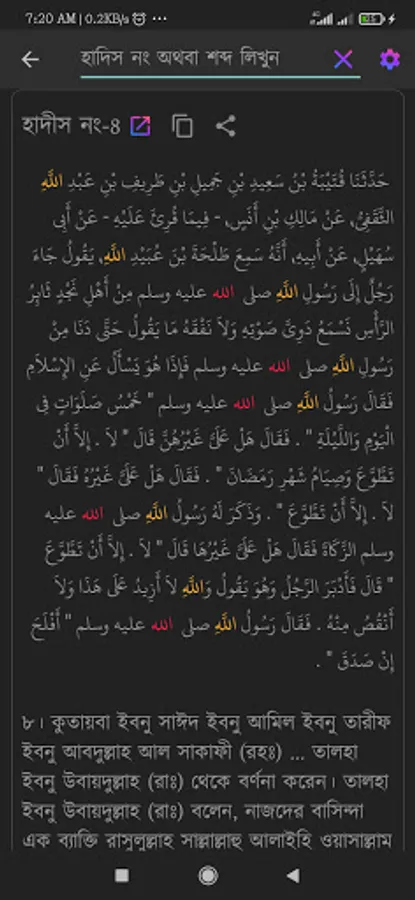 7:20 AM | 0.2KB/s
হাদিস নং অথবা শব্দ লিখুন
হাদীস নং-8
حَدَّثَنَا قُتَيْبَةُ بْنُ سَعِيدِ بْنِ جَمِيلِ بْنِ طَرِيفِ بْنِ عَبْدِ اللَّهِ
الثَّقَفِيُّ، عَنْ مَالِكِ بْنِ أَنَسٍ، - فِيمَا قُرِئَ عَلَيْهِ - عَنْ أَبِي
سُهَيْلٍ، عَنْ أَبِيهِ، أَنَّهُ سَمِعَ طَلْحَةَ بْنَ عُبَيْدِ اللَّهِ، يَقُولُ جَاءَ
رَجُلٌ إِلَى رَسُولِ اللَّهِ صلى الله عليه وسلم مِنْ أَهْلِ نَجْدٍ ثَائِرُ
الرَّأْسِ نَسْمَعُ دَوِيَّ صَوْتِهِ وَلاَ نَفْقَهُ مَا يَقُولُ حَتَّى دَنَا مِنْ
رَسُولِ اللَّهِ صلى الله عليه وسلم فَإِذَا هُوَ يَسْأَلُ عَنِ الإِسْلاَمِ
فَقَالَ رَسُولُ اللَّهِ صلى الله عليه وسلم " خَمْسُ صَلَوَاتٍ فِي
الْيَوْمِ وَاللَّيْلَةِ " . فَقَالَ هَلْ عَلَىَّ غَيْرُهُنَّ قَالَ " لاَ . إِلاَّ أَنْ
تَطَّوَّعَ وَصِيَامُ شَهْرِ رَمَضَانَ " . فَقَالَ هَلْ عَلَىَّ غَيْرُهُ فَقَالَ "
لاَ . إِلاَّ أَنْ تَطَّوَّعَ " . وَذَكَرَ لَهُ رَسُولُ اللَّهِ صلى الله عليه
وسلم الزَّكَاةَ فَقَالَ هَلْ عَلَىَّ غَيْرُهَا قَالَ " لاَ . إِلاَّ أَنْ تَطَّوَّعَ
" قَالَ فَأَدْبَرَ الرَّجُلُ وَهُوَ يَقُولُ وَاللَّهِ لاَ أَزِيدُ عَلَى هَذَا وَلاَ
أَنْقُصُ مِنْهُ . فَقَالَ رَسُولُ اللَّهِ صلى الله عليه وسلم " أَفْلَحَ
إِنْ صَدَقَ " .
৮। কুতায়বা ইবনু সাঈদ ইবনু আমিল ইবনু তারীফ
ইবনু আবদুল্লাহ আল সাকাফী (রহঃ) ... তালহা
ইবনু উবায়দুল্লাহ (রাঃ) থেকে বর্ণনা করেন। তালহা
ইবনু উবায়দুল্লাহ (রাঃ) বলেন, নাজদের বাসিন্দা
এক ব্যাক্তি রাসুলুল্লাহ সাল্লাল্লাহু আলাইহি ওয়াসাল্লাম